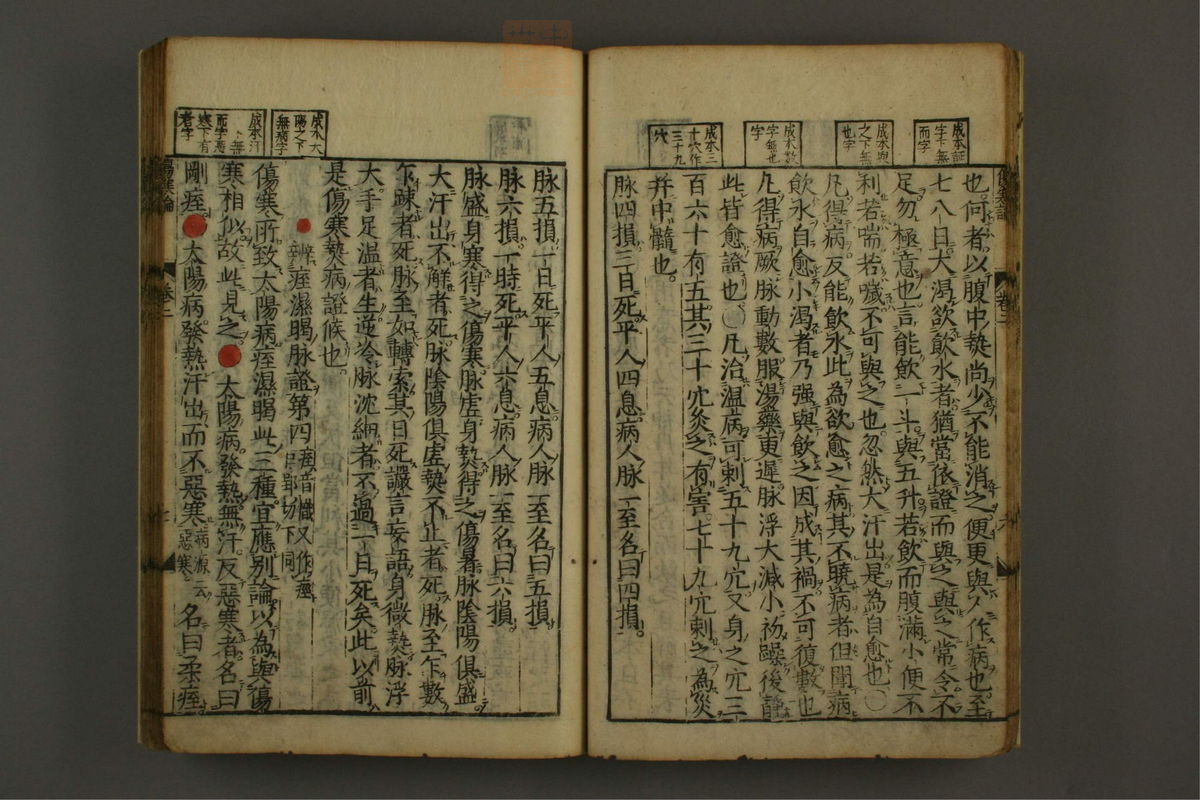 成本証
字下無
而字
成本與
之下無
也字
成本數
字無也
字
成本三
十穴作
三十九
穴
也何者以腹中熱尚少不能消之便更與人作病也至
七八日大渴欲飲水者猶當依證而與之與之常令不
足勿極意也言能飲一斗與五升若飲而腹滿小便不
利若喘若噦不可與之也忽然大汗出是為自愈也〇
凡得病反能飲水此為欲愈之病其不曉病者但聞病
飲水自愈小渴者乃强與飲之因成其禍不可復數也
凡得病厥脉動數服湯藥更遲脉浮大減小初躁後靜
此皆愈證也〇凡治温病可刺五十九穴又身之穴三
百六十有五其三十穴灸之有害七十九穴刺之為災
并中髓也
脉四損三日死平人四息病人脉一至名曰四損
傷寒論
卷二
成本大
陽之下
無病字
成本汗
下無
而字惡
寒下有
者字
脉五損一日死平人五息病人脉一至名曰五損
脉六損一時死平人六息病人脉一至名曰六損
脉盛身寒得之傷寒脉虚身熱得之傷暑脉陰陽俱盛
大汗出不解者死脉陰陽俱虚熱不止者死脉至乍數
乍踈者死脉至如轉索其日死讝言妄語身微熱脉浮
大手足温者生逆冷脉沈細者不過一日死矣此以前
是傷寒熱病證候也
辨痓濕暍脉證第四 痓音熾又作痙
巨郢切下同
傷寒所致太陽病痓濕暍此三種宜應别論以為與傷
寒相似故此見之 太陽病發熱無汗反惡寒者名曰
剛痓 太陽病發熱汗出而不惡寒 病源云
惡寒 名曰柔痓
傷寒論
卷二